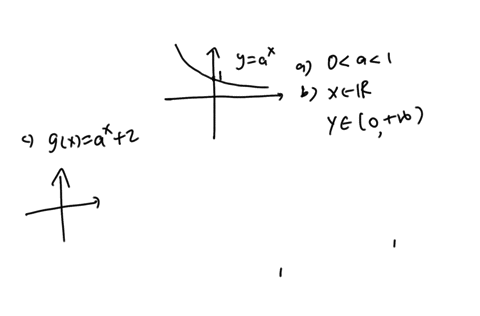 y=a^x
1
a) 0<a<1
b) x∈ℝ
y∈(0,+∞)
c) g(x)=a^x+2